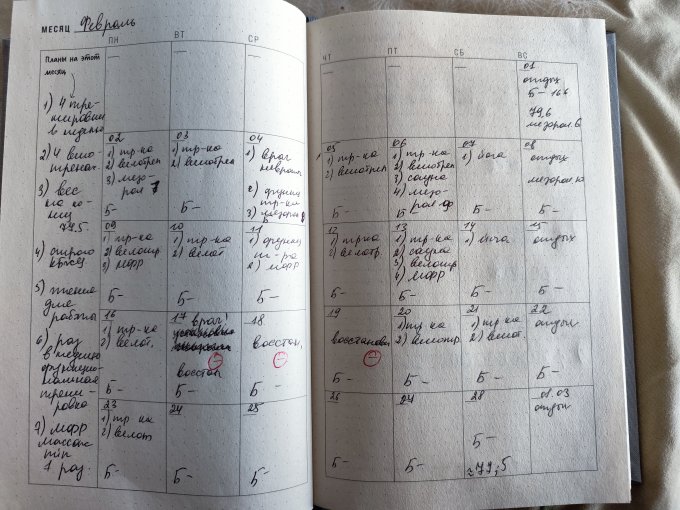 МЕСЯЦ Февраль
ПН ВТ СР
Планы на этот
месяц
1) 4 тре-
нировки
в неделю
2) 4 вело
тренаж.
3) вес
на конец
79.5.
4) строго
КБЖУ
5) чтение
для
работы
6) раз
в неделю
функцио-
нальная
трени-
ровка
7) МФР
массаж
1 раз.
02
1) тр-ка
2) велотрен
3) мезо-
рол 7
Б-
03
1) тр-ка
2) велотрен
Б-
04
1) врач
невролог
2) функц
тр-ка
3) мезорол 8
Б-
09
1) тр-ка
2) велотр
3) МФР
Б-
10
1) тр-ка
2) велот
Б-
11
1) функц
т-ра
2) МФР
Б-
16
1) тр-ка
2) велот.
Б-
17 врач!
восстан
Б-
18.
восстан.
Б-
23
1) тр ка
2) велот
Б-
24
Б-
25
Б-
ЧТ ПТ СБ ВС
01
отдых
Б- 166
79,6
мезорол. 6
05
1) тр-ка
2) велотрен
Б-
06
1) тр-ка
2) велотрен
3) сауна
4) мезо-
рол
Б-
07
1) йога
Б-
08
отдых
мезорол 10
Б-
12
1) тр ка
2) велотр.
Б-
13
1) тр-ка
2) сауна
3) велотр
4) МФР
Б-
14
1) йога
Б-
15
отдых
Б-
19
восстановл
Б-
20
1) тр ка
2) велотр.
Б-
21
1) тр-ка
2) велот.
Б-
22
отдых
Б-
26
Б-
27
Б-
28
Б-
≈79,5
01.03
отдых
Б-